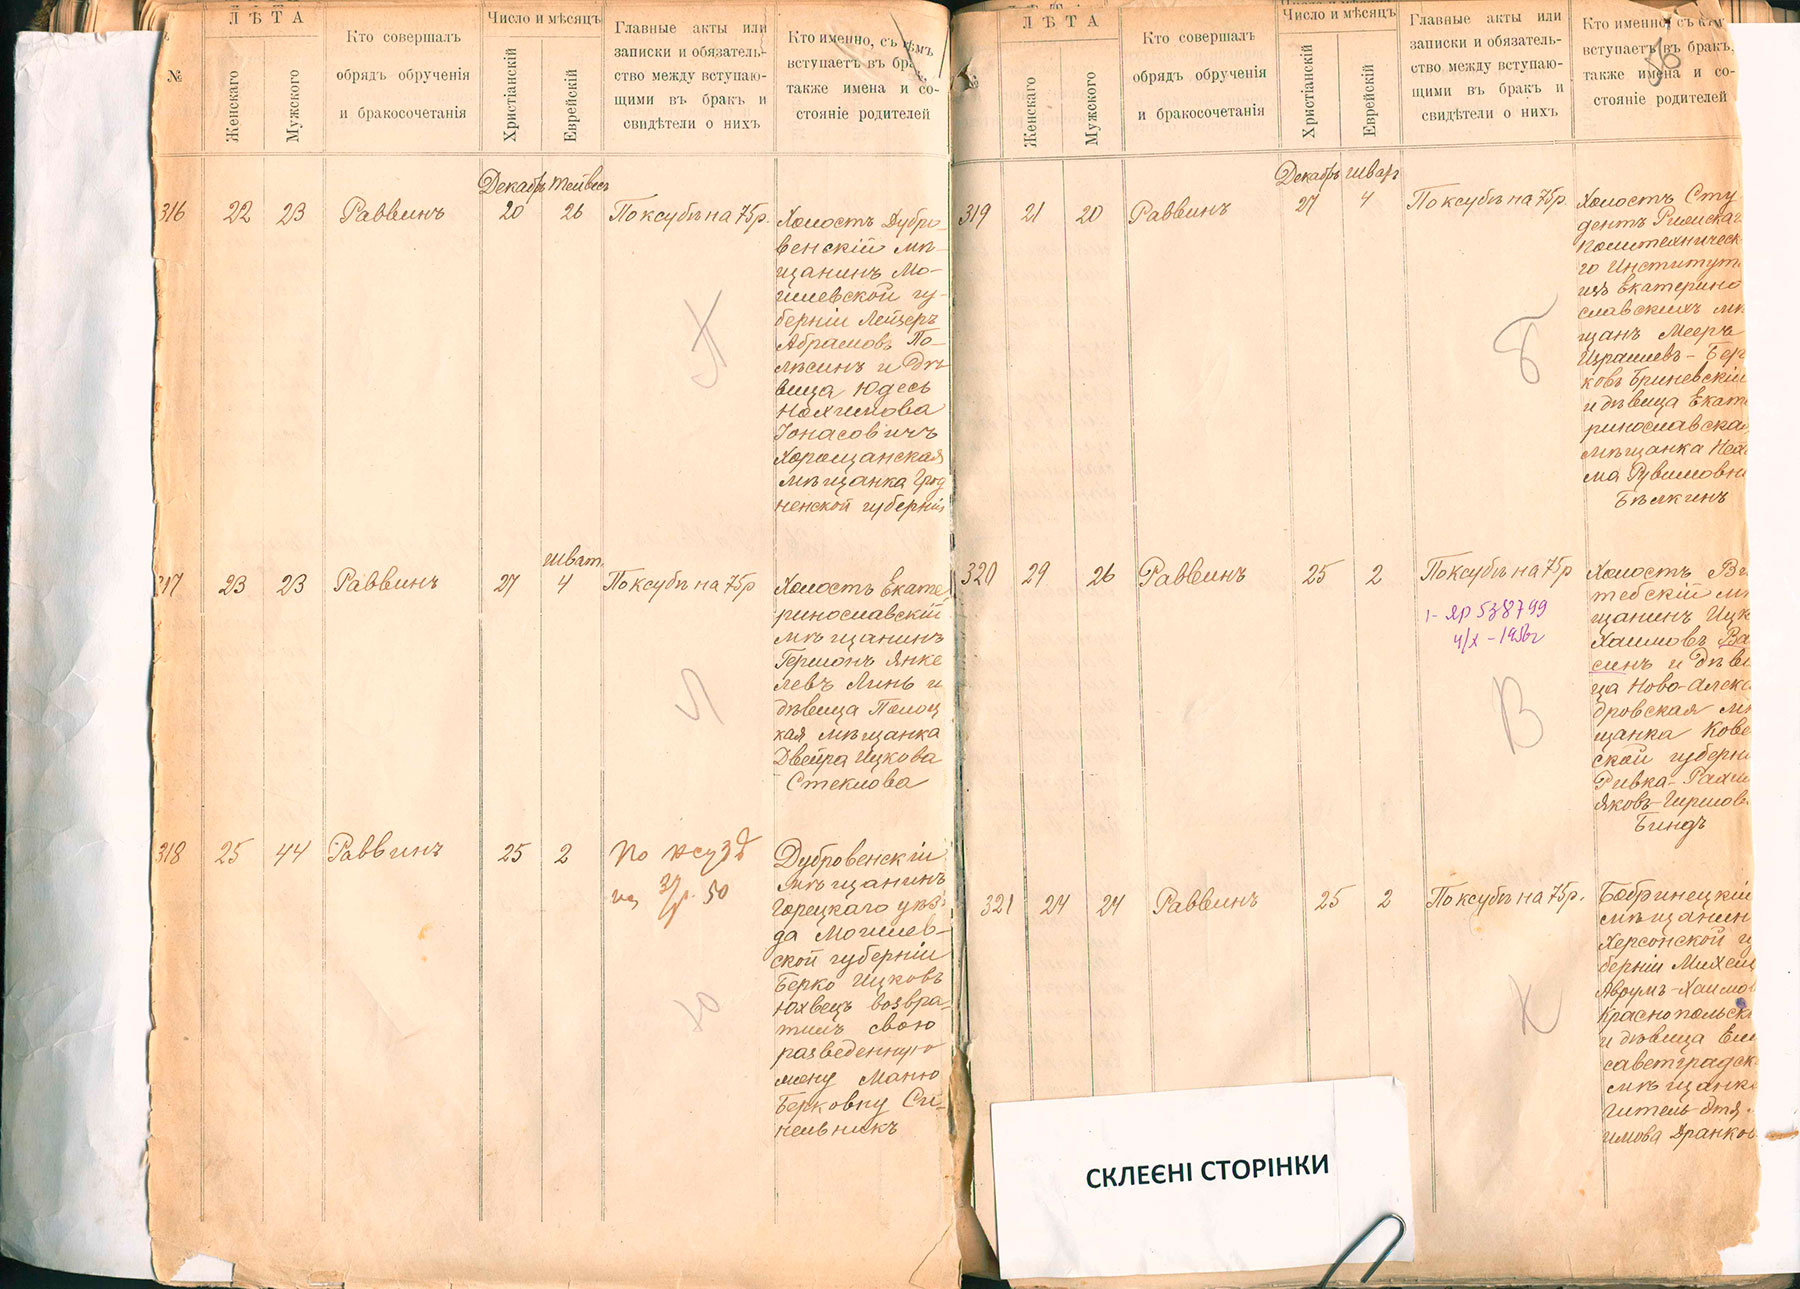 №
ЛѢТА
Женскаго
Мужского
Кто совершалъ
обрядъ обрученія
и бракосочетанія
Число и мѣсяцъ
Христіанскій
Еврейскій
Главные акты или
записки и обязатель-
ство между вступаю-
щими въ бракъ и
свидѣтели о нихъ
Кто именно, съ кѣмъ
вступаетъ въ бракъ,
также имена и со-
стояніе родителей
Декабрь Тейвесъ
316 22 23 Раввинъ 20 26 По ксубѣ на 75р.
Холостъ Дубро-
венскій мѣ-
щанинъ Мо-
гилевской гу-
берніи Лейзеръ
Абрамовъ По-
лѣсинъ и дѣ-
вица Юдесъ
Нохимова
Іонасовичъ
Хорощанская
мѣщанка Грод
ненской губерніи
Л
Шват.
317 23 23 Раввинъ 27 4 По ксубѣ на 75р
Холостъ Екате
ринославскій
мѣщанинъ
Гершонъ Янке
левъ Линь и
дѣвица Полоц
кая мѣщанка
Двейра Ицкова
Стеклова
318 25 44 Раввинъ 25 2 По ксубѣ
на 37р. 50
Дубровенскій
мѣщанинъ
Горецкаго уѣз
да Могилев-
ской губерніи
Берко Ицковъ
Юхвецъ возвра-
тилъ свою
разведенную
жену Маню
Берковну Си-
нельникъ
Ю
№
ЛѢТА
Женскаго
Мужского
Кто совершалъ
обрядъ обрученія
и бракосочетанія
Число и мѣсяцъ
Христіанскій
Еврейскій
Главные акты или
записки и обязатель-
ство между вступаю-
щими въ бракъ и
свидѣтели о нихъ
Кто именно, съ кѣмъ
вступаетъ въ бракъ,
также имена и со-
стояніе родителей
Декабрь Шватъ
319 21 20 Раввинъ 27 4 По ксубѣ на 75р.
Холостъ Сту
дентъ Рижскаг
Политехническ
го Институт
изъ Екатерино
славскихъ мѣ
щанъ Мееръ
Израилевъ-Бер
ковъ Бриневскій
и дѣвица Екате
ринославская
мѣщанка Неха
ма Рувимовна
Бѣлкинъ
Б
320 29 26 Раввинъ 25 2 По ксубѣ на 75р
1- ЯР 538799
4/X-1958г
Холостъ Ви
тебскій мѣ
щанинъ Ицк
Хаимовъ Ва
синъ и дѣви
ца Ново-Алекса
дровская мѣ
щанка Кове
ской губерни
Ривка-Рахил
Яковъ-Гиршов
Биндъ
В
321 24 24 Раввинъ 25 2 По ксубѣ на 75р.
Бобринецкій
мѣщанин
Херсонской гу
берніи Михел
Аврумъ-Хаимов
Краснопольск
и дѣвица Ели
саветградск
мѣщанка
Гитель-Этя
имова Дранков
К
СКЛЕЄНІ СТОРІНКИ